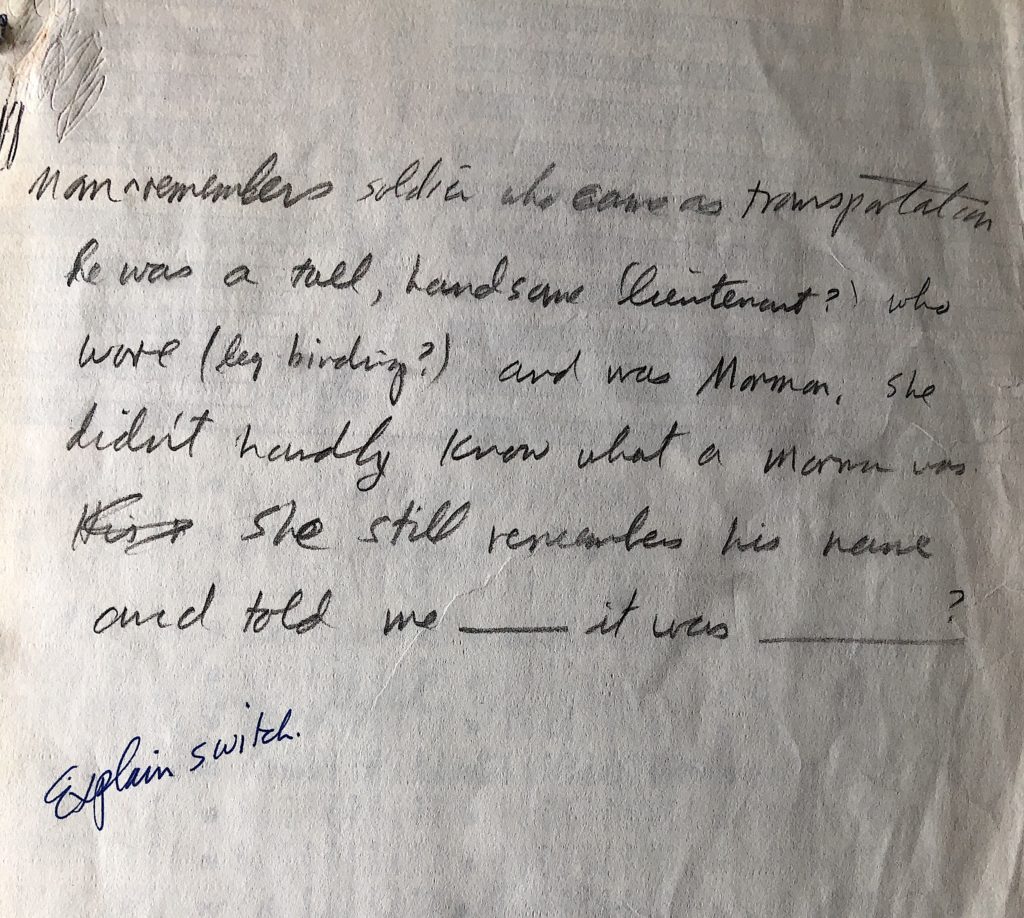 Mom remembers soldier who came as transportation
he was a tall, handsome (lieutenant?) who
wore (leg binding?) and was Mormon. She
didn't hardly know what a Mormon was.
She still remembers his name
and told me ____ it was ________?
Explain switch.